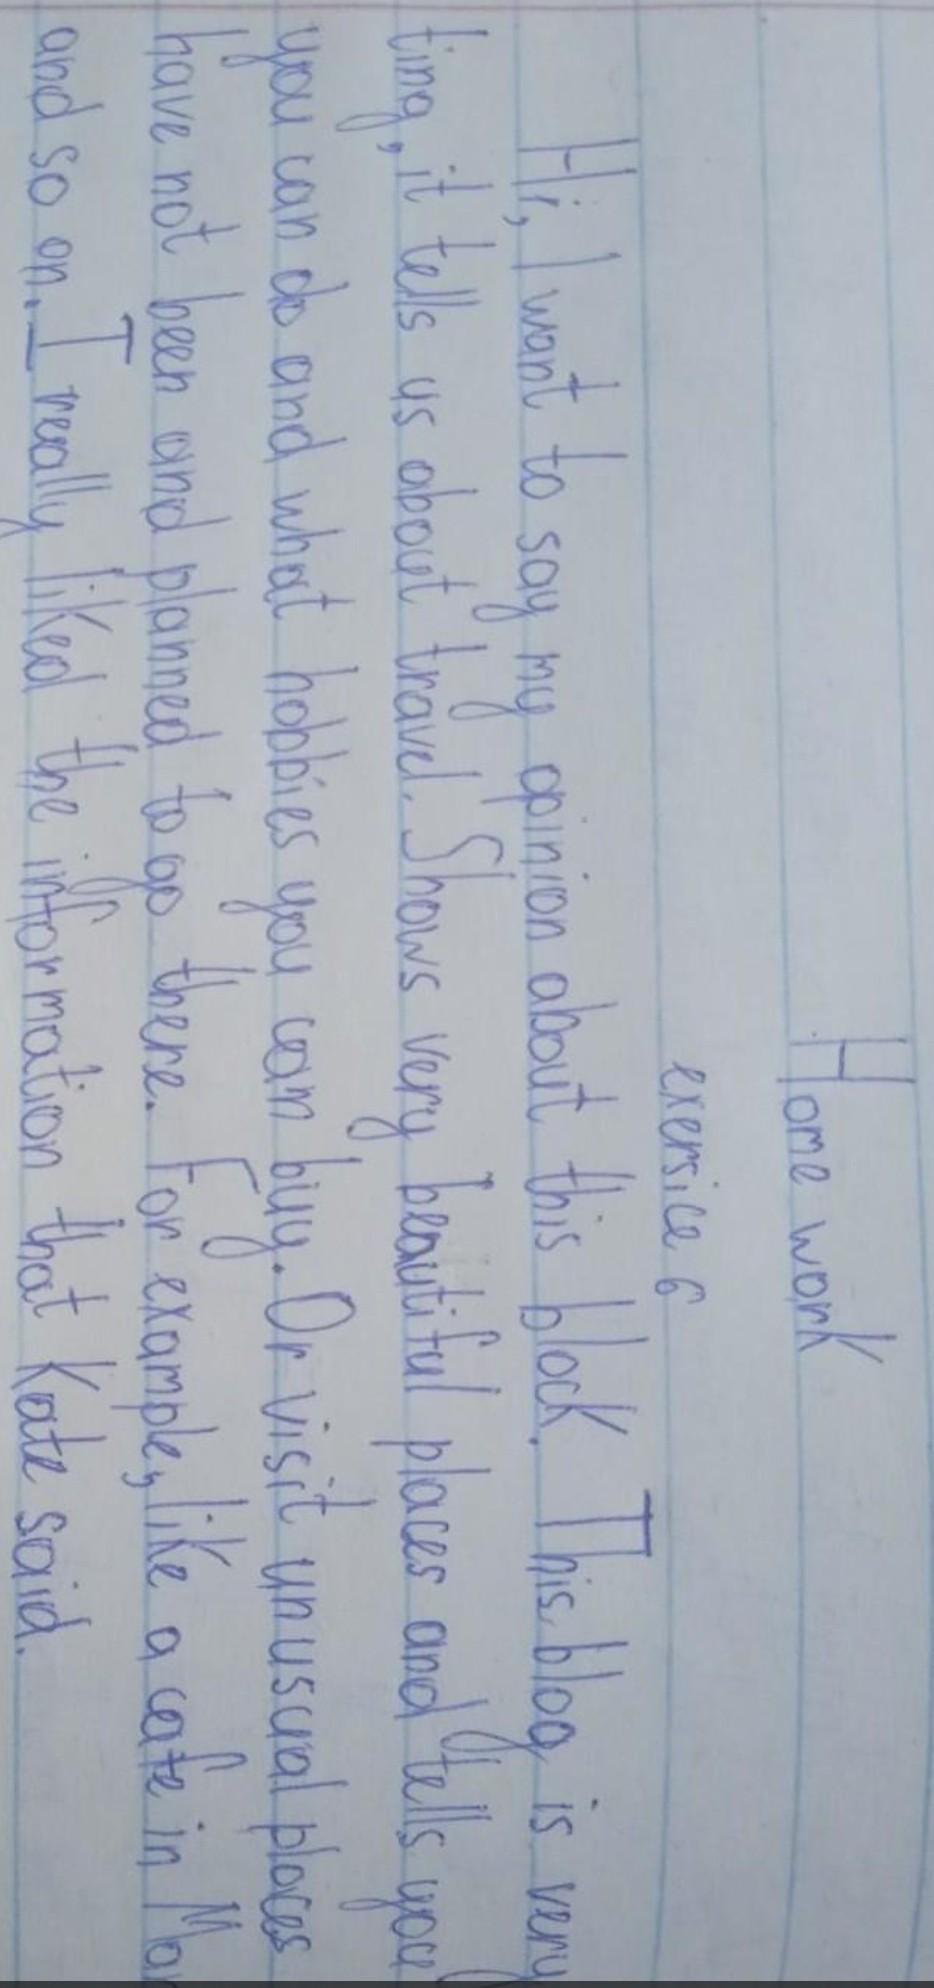 Home work
exersice 6
Hi, I want to say my opinion about this block. This blog is very
ting, it tells us about travel. Shows very beautiful places and tells you
you can do and what hobbies you can buy. Or visit unusual places
have not been and planned to go there. For example, like a cafe in
and so on. I really liked the information that Kate said.